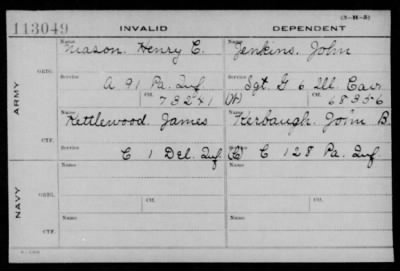 (3-H-3)
113049 INVALID DEPENDENT
Name Name
Mason, Henry C. Jenkins, John
ORIG. Service Service
A 91 Pa. Inf. Sgt. G 6 Ill. Cav.
ARMY Ctf. 73241 (W) Ctf. 68356
Name Name
Kettlewood James Kirbaugh, John B.
CTF. Service
C 1 Del. Inf. C 128 Pa. Inf.
NAVY
Name Name
ORIG. Service Ctf. Service Ctf.
Name Name
CTF. Service Service